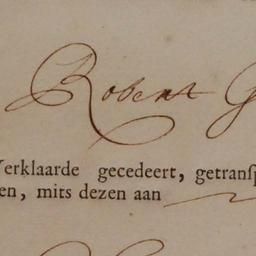 Robent G
Verklaarde gecedeert, getransp
en, mits dezen aan